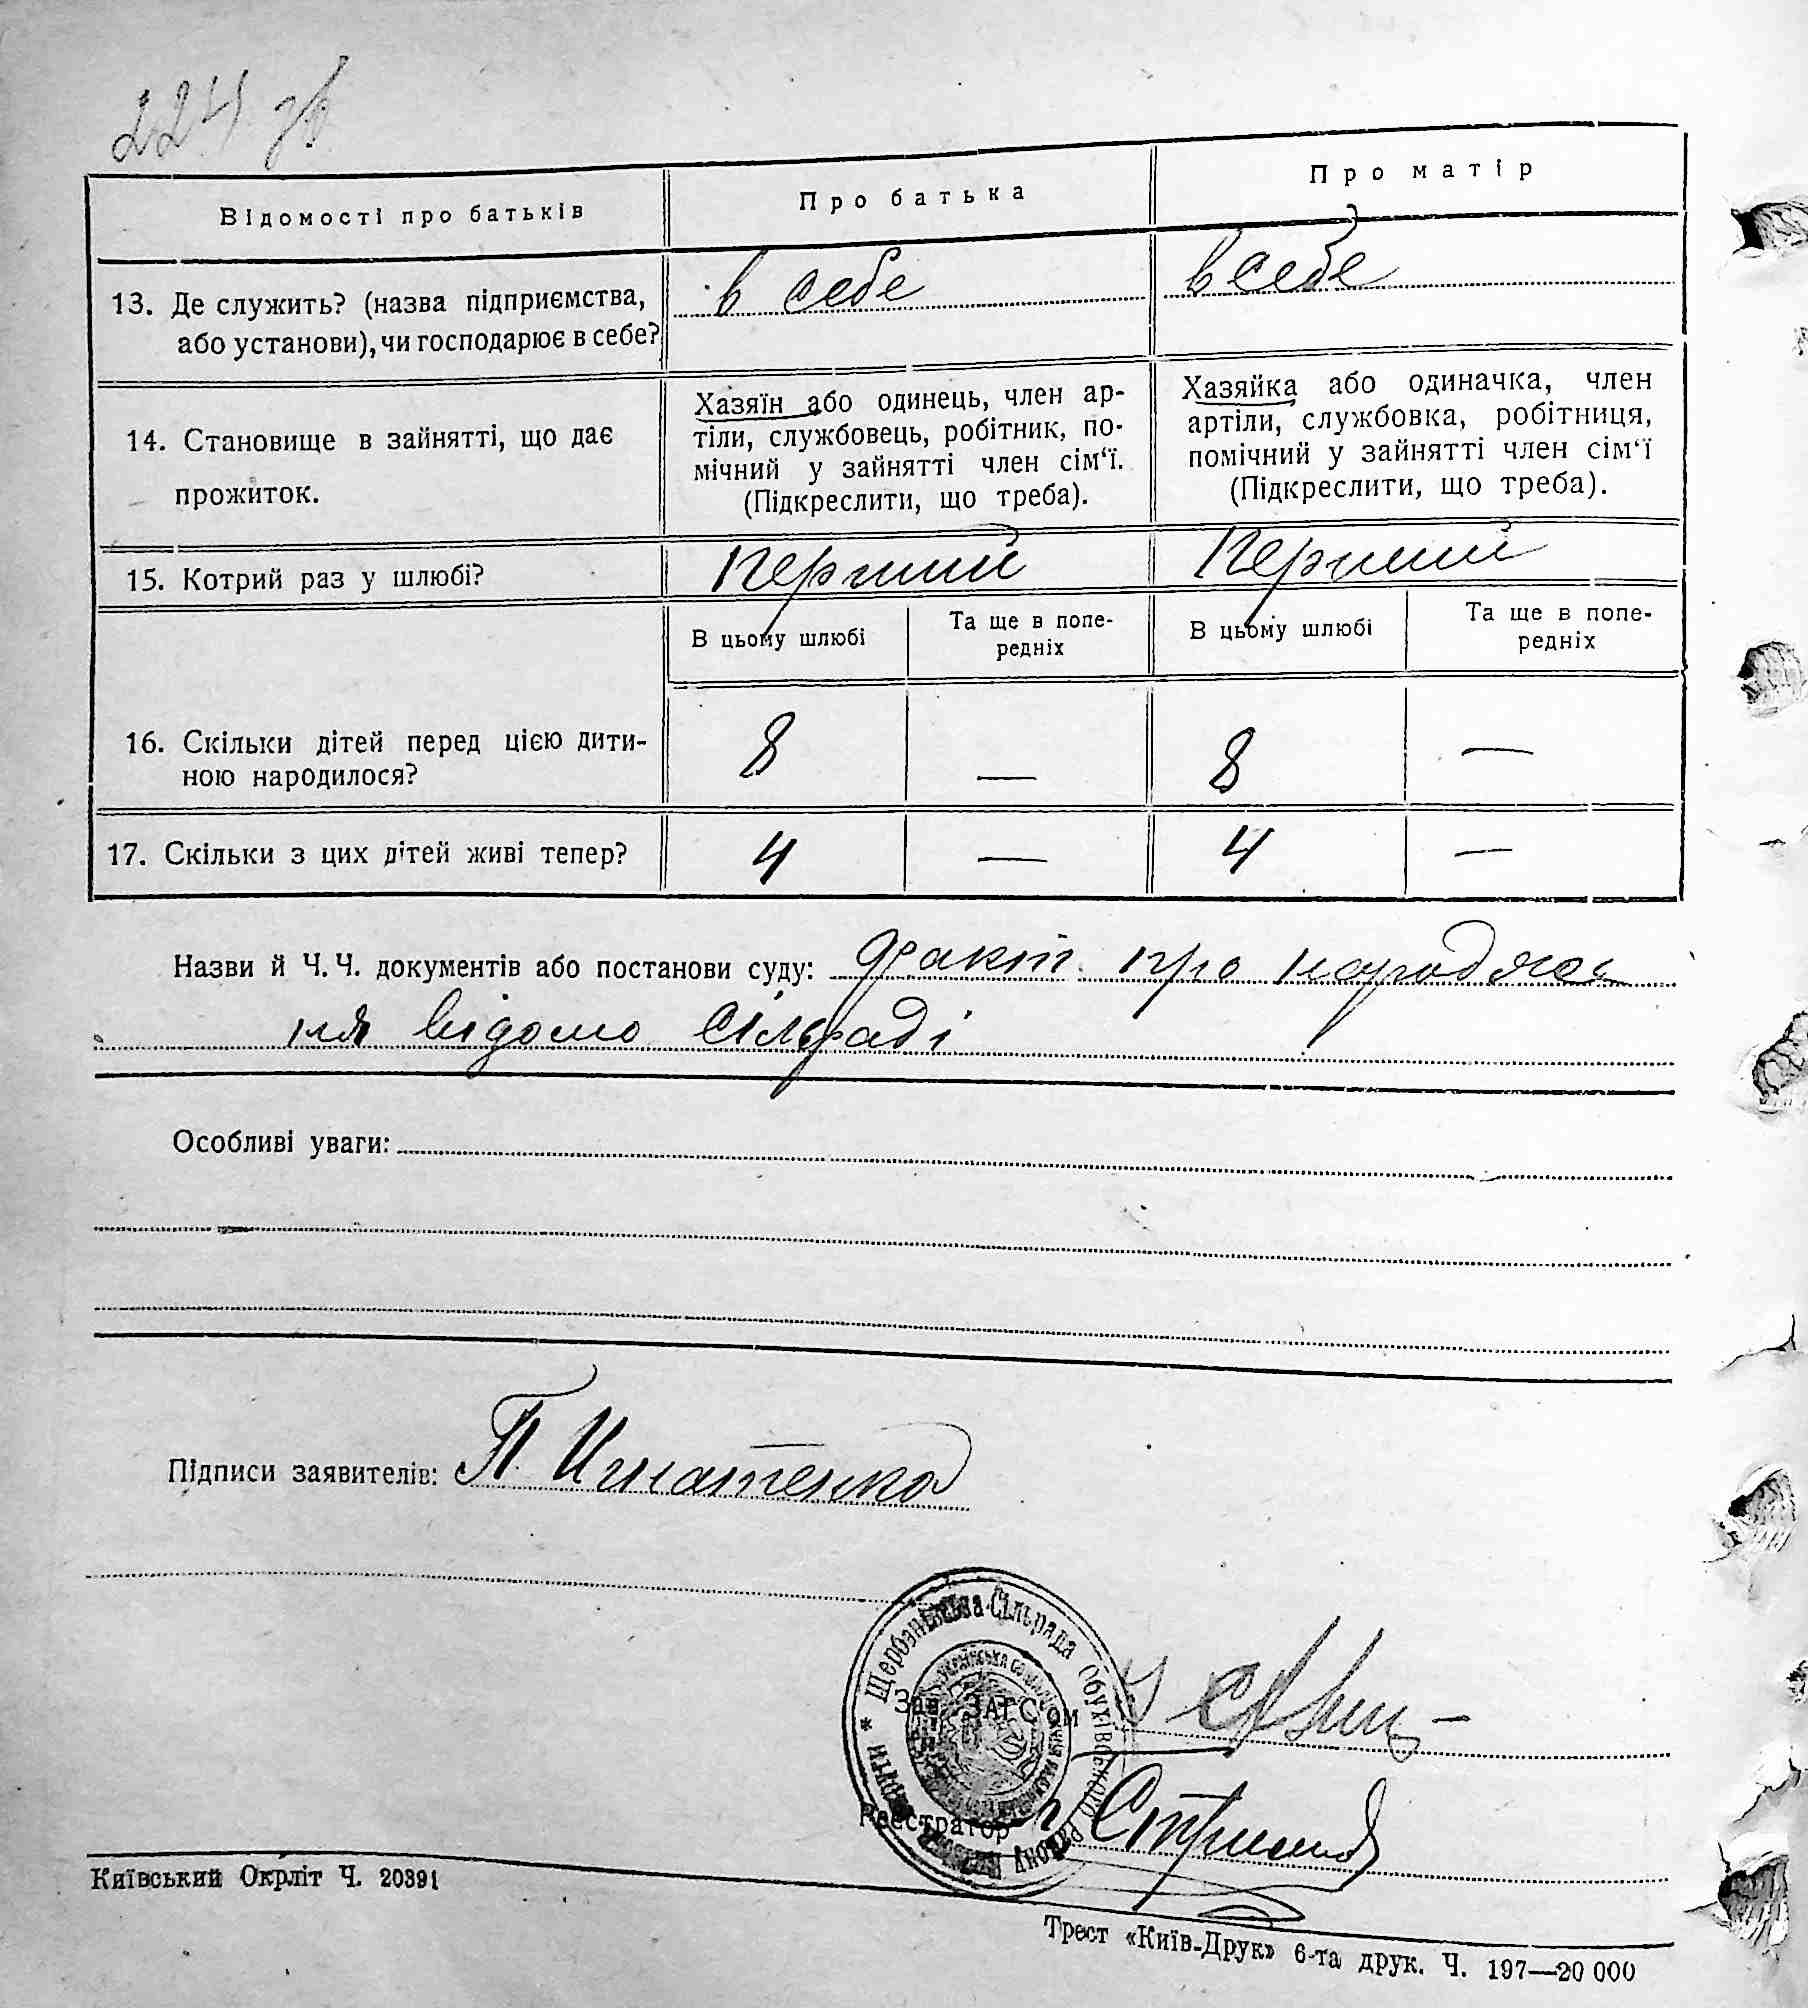 224 зв
Відомості про батьків
Про батька
Про матір
13. Де служить? (назва підприємства,
або установи), чи господарює в себе?
в себе
в себе
14. Становище в зайнятті, що дає
прожиток.
Хазяїн або одинець, член ар-
тіли, службовець, робітник, по-
мічний у зайнятті член сім‘ї.
(Підкреслити, що треба).
Хазяйка або одиначка, член
артіли, службовка, робітниця,
помічний у зайнятті член сім‘ї
(Підкреслити, що треба).
15. Котрий раз у шлюбі?
Перший
Перший
В цьому шлюбі
Та ще в попе-
редніх
В цьому шлюбі
Та ще в попе-
редніх
16. Скільки дітей перед цією дити-
ною народилося?
8
—
8
—
17. Скільки з цих дітей живі тепер?
4
—
4
—
Назви й Ч. Ч. документів або постанови суду: факт про народжен
ня відомо сілраді
Особливі уваги:
Підписи заявителів: П. Игнатенко
Щербанівська Сільрада Обухівського району
Зав. ЗАГС‘ом
Реєстратор
Київський Окрліт Ч. 20391
Трест «Київ-Друк» 6-та друк. Ч. 197—20 000